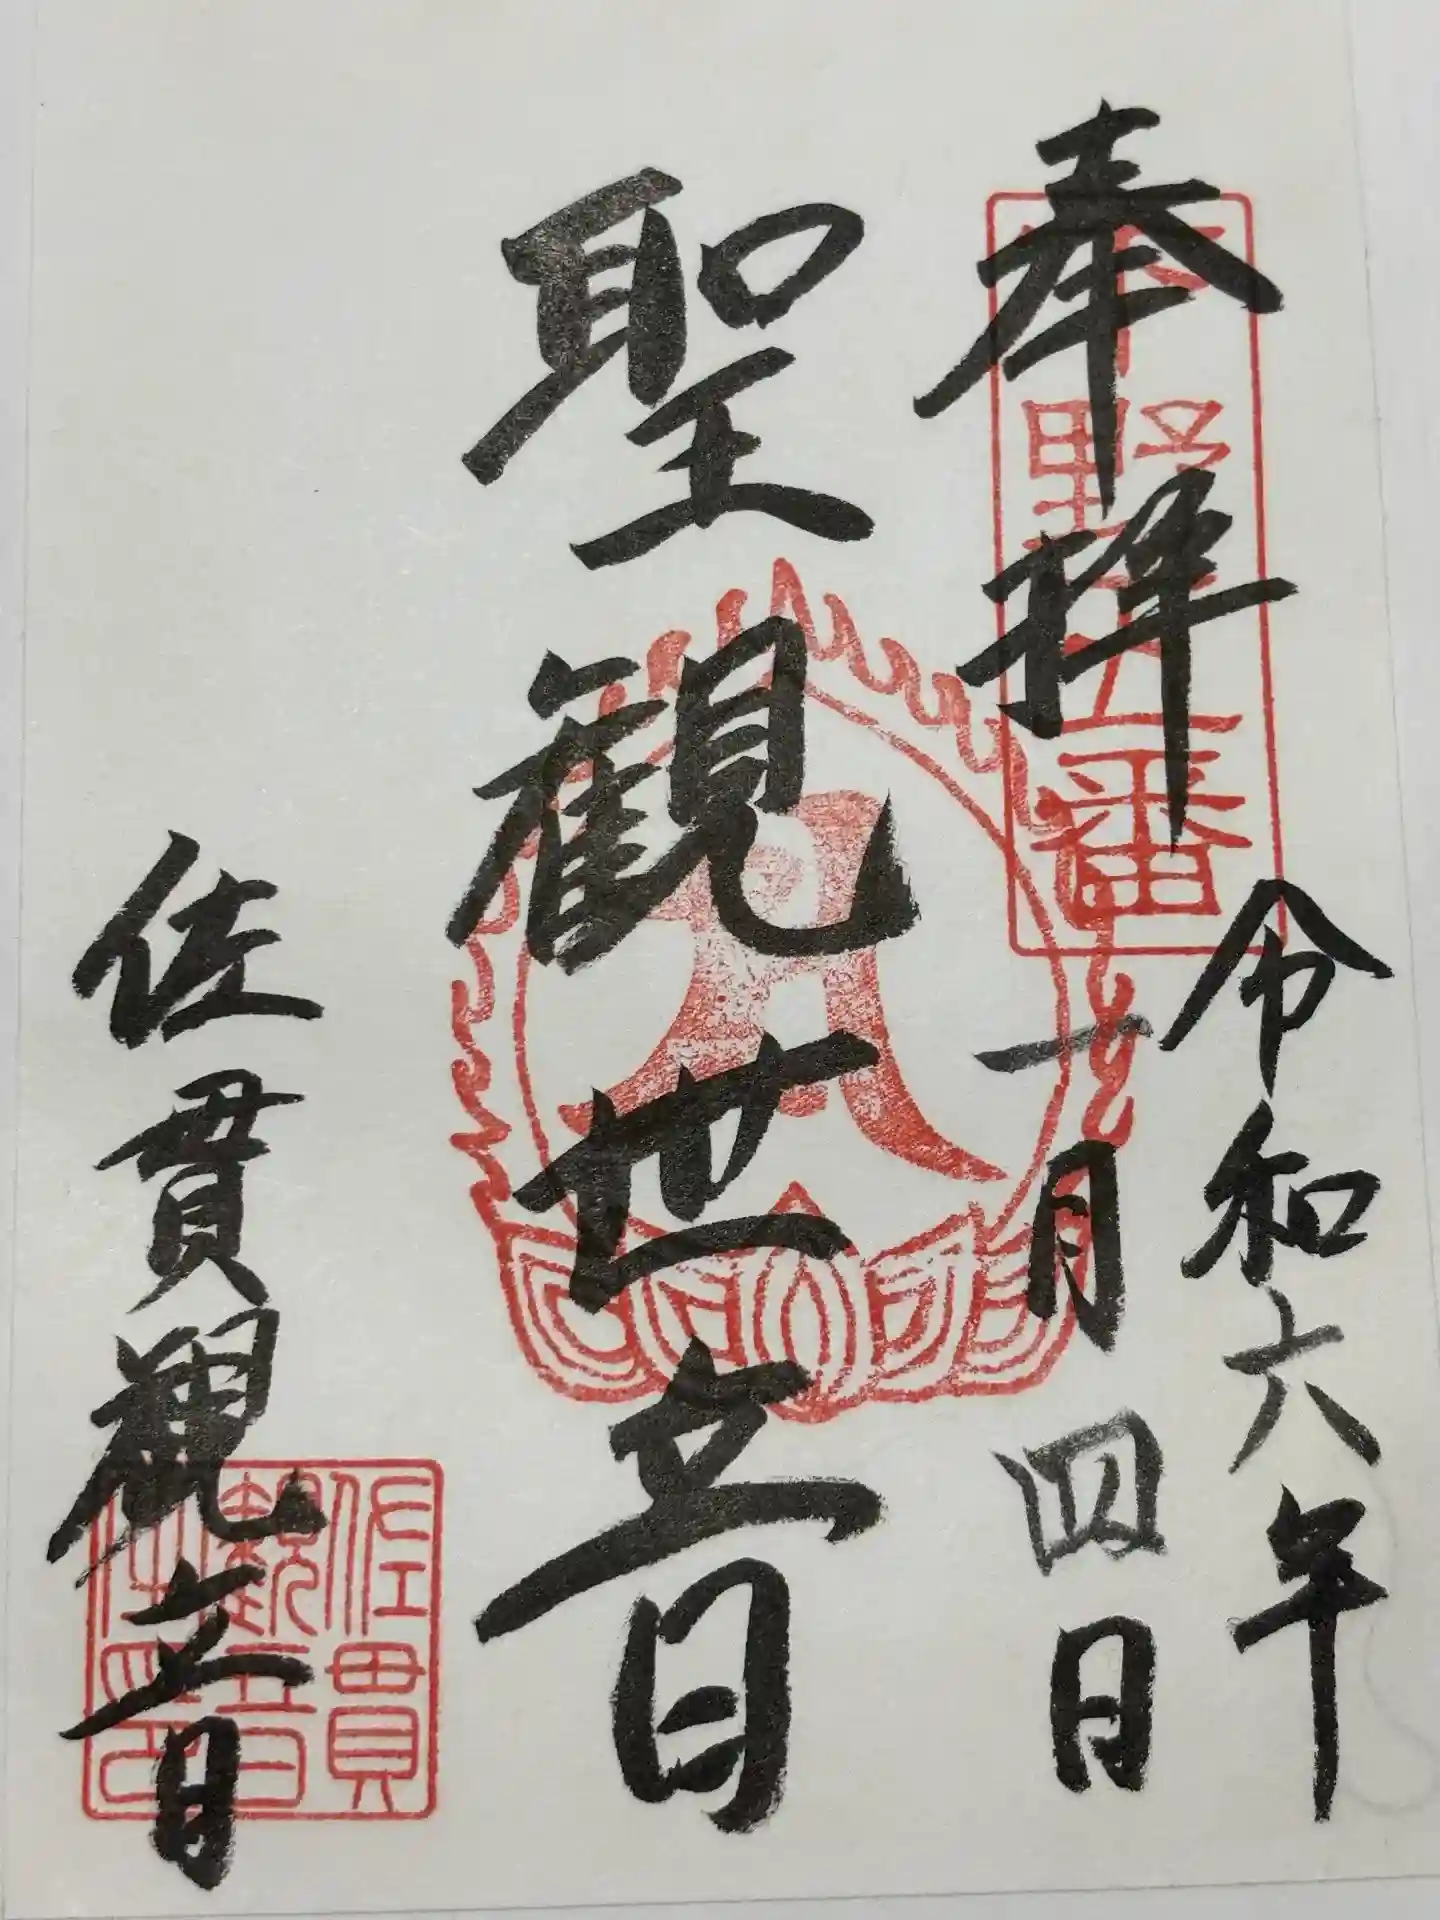 奉拝
下野五番
令和六年
一月四日
聖観世音
佐貫観音
佐貫
観音